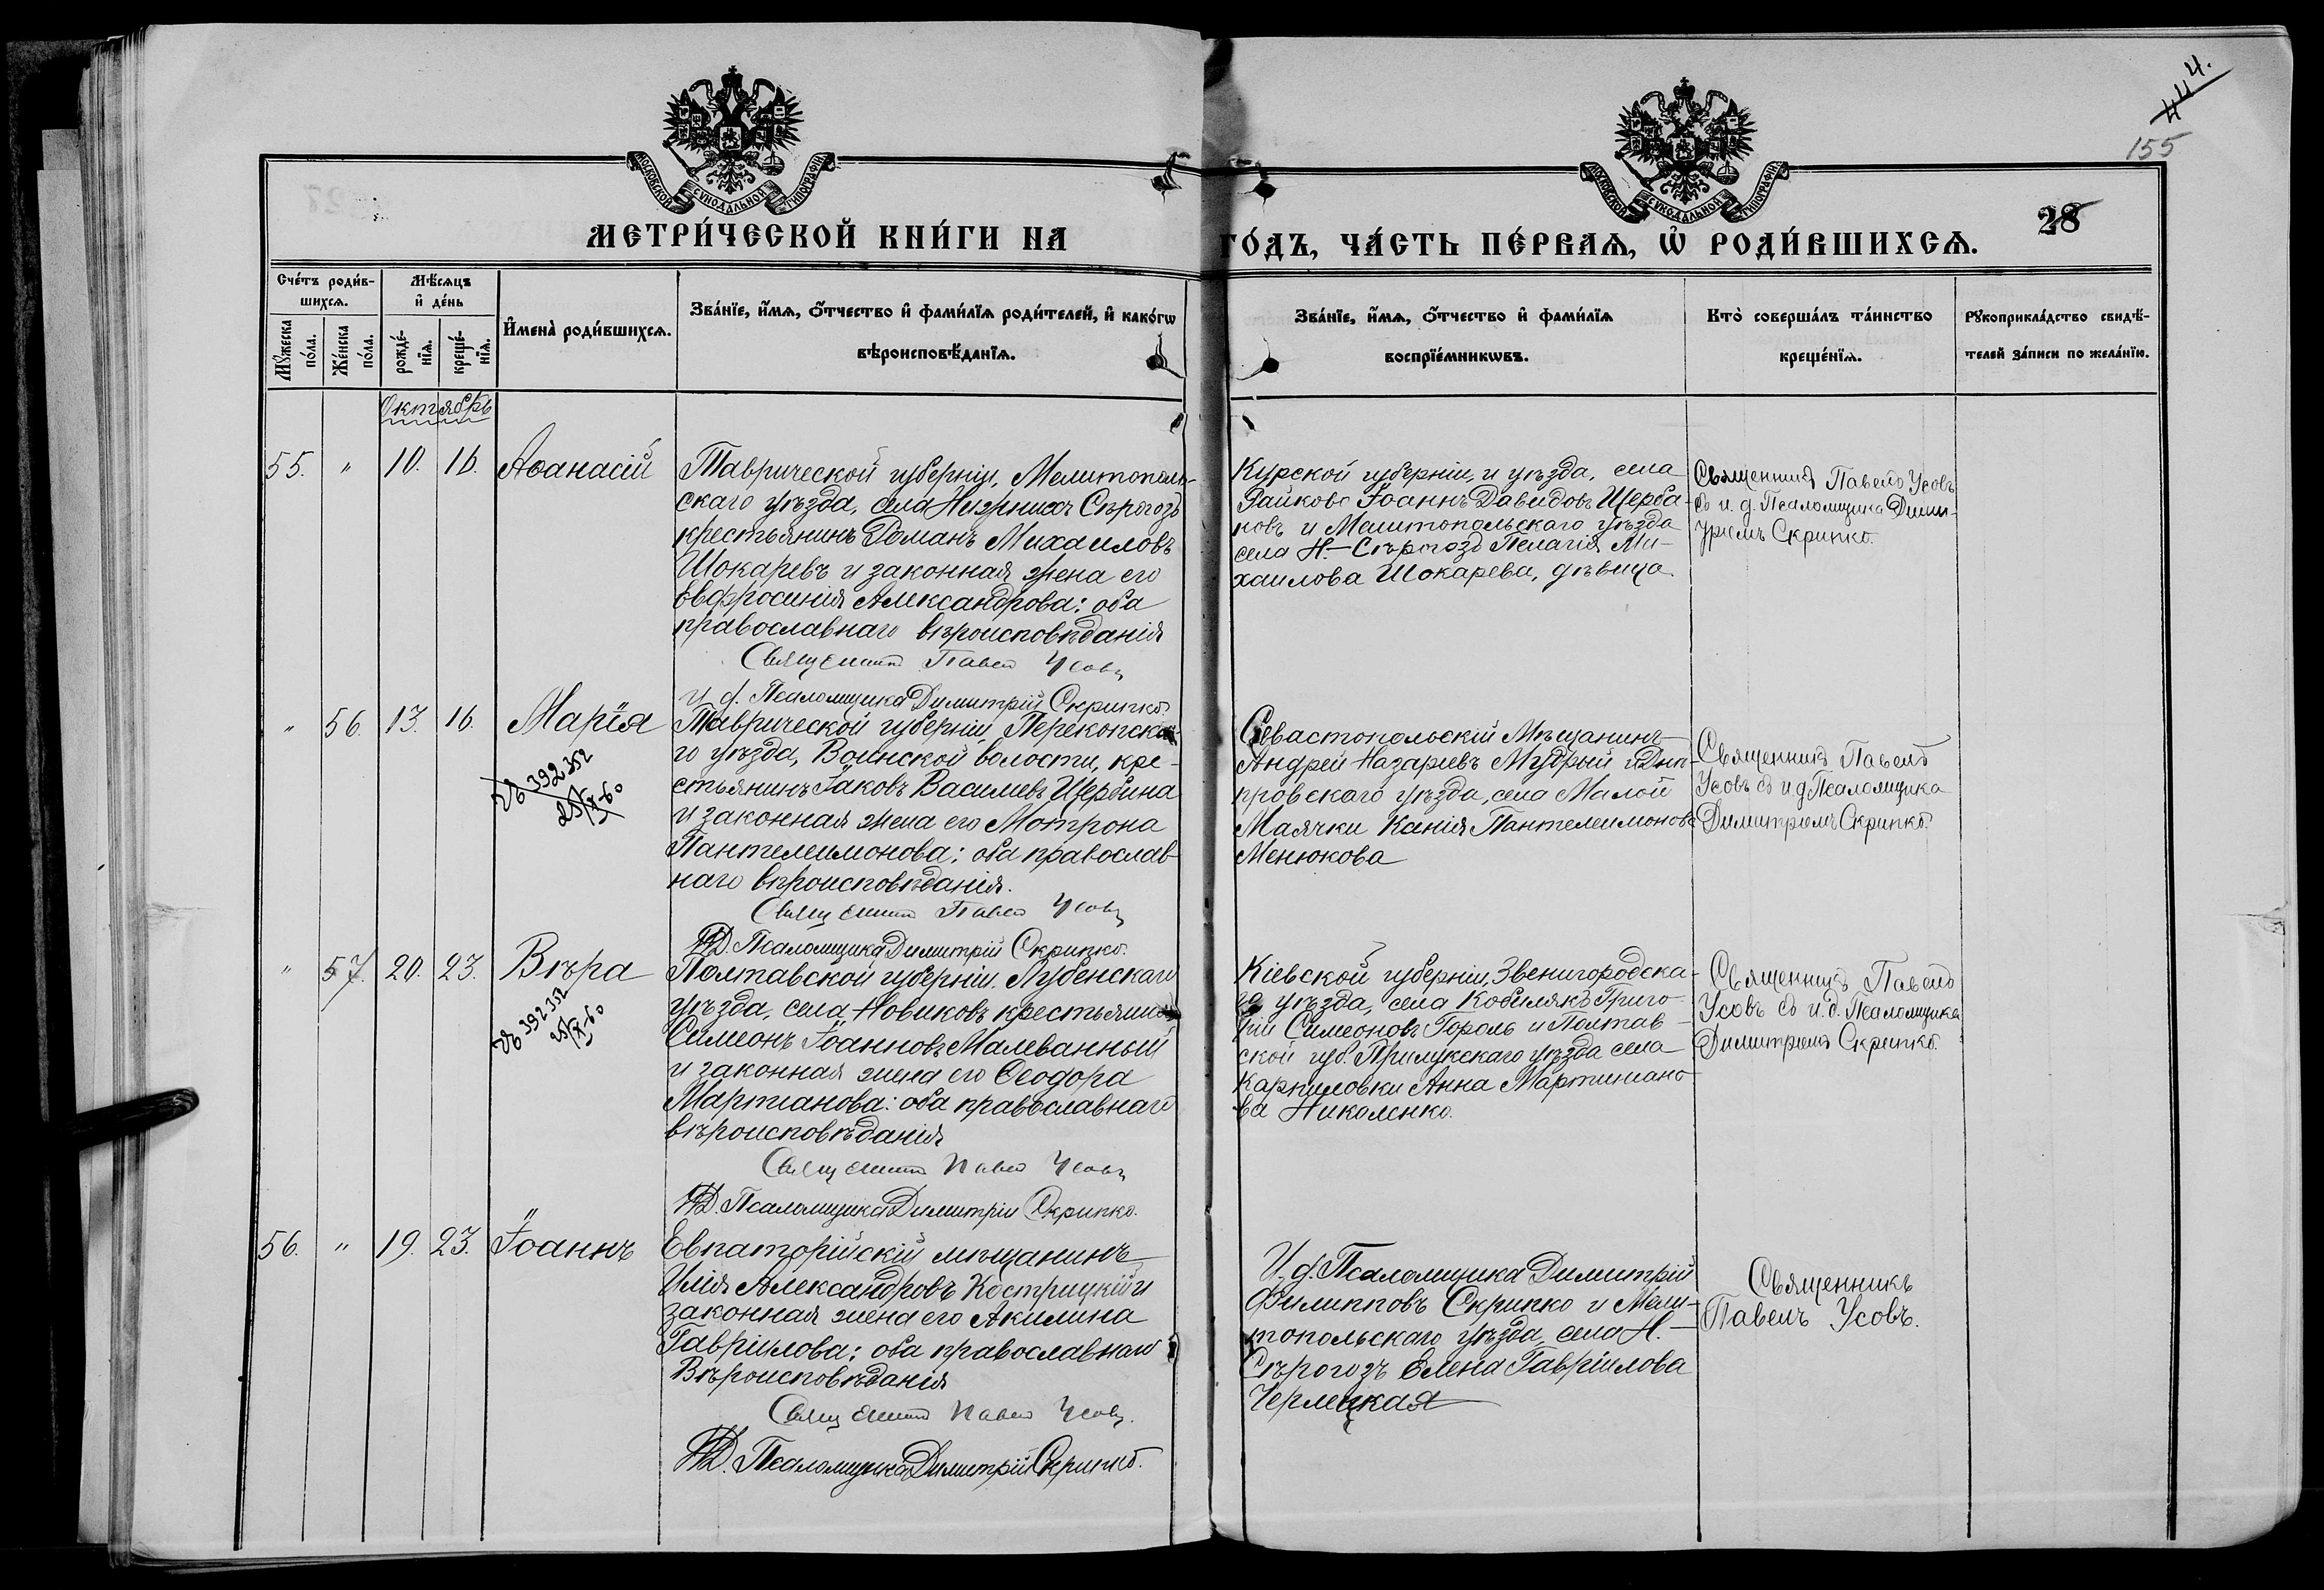 44.
155
МОСКОВСКОЙ СѴНОДАЛЬНОЙ ТИПОГРАФІИ
МОСКОВСКОЙ СѴНОДАЛЬНОЙ ТИПОГРАФІИ
28
МЕТРИ́ЧЕСКОЙ КНИ́ГИ НА
ГО́ДЪ, ЧА́СТЬ ПЕ́РВАѦ, Ѽ РОДИ́ВШИХСѦ.
Сче́тъ роди́в-
шихсѧ.
Мꙋ́жеска по́ла.
Же́нска по́ла.
Мѣ́сѧцъ
и҆ де́нь
рожде́-нїѧ.
креще́-нїѧ.
И҆мена̀ роди́вшихсѧ.
Зва́нїе, и҆́мѧ, ѻ҆́тчество и҆ фами́лїѧ роди́телей, и҆ како́гѡ
вѣроисповѣ́данїѧ.
Зва́нїе, и҆́мѧ, ѻ҆́тчество и҆ фами́лїѧ
воспрїе́мникѡвъ.
Кто̀ соверша́лъ та́инство
креще́нїѧ.
Рꙋкоприкла́дство свидѣ́-
телей за́писи по жела́нїю.
Октябрь
55. " 10. 16. Аѳанасій
Таврической губерніи, Мелитополь-
скаго уѣзда, села Нижнихъ Сѣрогозъ
крестьянинъ Романъ Михаиловъ
Шокаревъ и законная жена его
Евфросинія Александрова: оба
православнаго вѣроисповѣданія
Священникъ Павелъ Усовъ
И. д. Псаломщика Димитрій Скрипко.
Курской губерніи, и уѣзда, села
Райково Іоаннъ Давидовъ Щерба-
ковъ и Мелитопольскаго уѣзда
села Н.-Сѣрогозъ Пелагія Ми-
хаилова Шокарева, дѣвица.
Священникъ Павелъ Усовъ
съ и. д. Псаломщика Дими-
тріемъ Скрипко.
" 56. 13. 16. Марія
392352
25/IX-60
Таврической губерніи, Перекопска-
го уѣзда, Воинской волости, кре-
стьянинъ Іаковъ Василіевъ Щербина
и законная жена его Мотрона
Пантелеимонова; оба православ-
наго вѣроисповѣданія.
Священникъ Павелъ Усовъ
И.Д. Псаломщика Димитрій Скрипко.
Севастопольскій Мѣщанинъ
Андрей Назаріевъ Мудрый и Днѣ-
провскаго уѣзда, села Малой
Маячки Ксенія Пантелеимонова
Менюкова
Священникъ Павелъ
Усовъ съ и д Псаломщика
Димитріемъ Скрипко.
" 57. 20. 23. Вѣра
392352
25/IX-60
Полтавской губерніи, Лубенскаго
уѣзда, села Новиковъ крестьянинъ
Симеонъ Іоанновъ Малеванный
и законная жена его Ѳеодора
Мартіанова: оба православнаго
вѣроисповѣданія
Священникъ Павелъ Усовъ
И.Д. Псаломщика Димитріи Скрипко.
Кіевской губерніи, Звенигородска-
го уѣзда, села Кобылякъ Григо-
рій Симеоновъ Гороль и Полтав-
ской губ. Прилукскаго уѣзда села
Карпиловки Анна Мартиніано-
ва Николенко.
Священникъ Павелъ
Усовъ съ и. д. Псаломщика
Димитріемъ Скрипко.
56. " 19. 23. Іоаннъ
Евпаторійскій мѣщанинъ
Илія Александровъ Кострицкій и
законная жена его Акилина
Гавріилова; оба православнаго
Вѣроисповѣданія
Священникъ Павелъ Усовъ.
И.Д. Псаломщика Димитрій Скрипко.
И. д. Псаломщика Димитрій
Филипповъ Скрипко и Мели-
топольскаго уѣзда, села Н.-
Сѣрогозъ Елена Гавріилова
Черлецкая
Священникъ
Павелъ Усовъ.